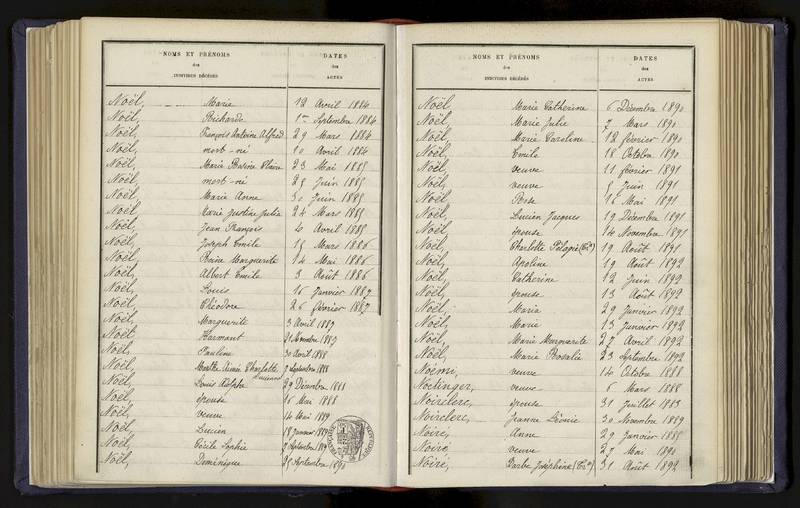 NOMS ET PRÉNOMS
des
INDIVIDUS DÉCÉDÉS
DATES
des
ACTES
Noël, Marie 12 Avril 1884
Noël, Richarde 1er Septembre 1884
Noël, François Antoine Alfred 29 Mars 1884
Noël, mort-né 10 Avril 1884
Noël, Marie Rosine Claire 23 Mai 1885
Noël, mort-né 25 Juin 1885
Noël, Marie Anne 30 Juin 1885
Noël, Marie Justine Julie 24 Mars 1885
Noël, Jean François 4 Avril 1885
Noël, Joseph Emile 15 Mars 1886
Noël, Reine Marguerite 14 Mai 1886
Noël, Albert Emile 3 Août 1886
Noël, Louis 16 Janvier 1887
Noël, Théodore 26 Février 1887
Noël, Marguerite 3 Avril 1887
Noël, Harmant 21 Novembre 1887
Noël, Pauline 30 Avril 1888
Noël, Marthe Aimée Charlotte 7 Septembre 1888
Noël, Louis Adolphe 29 Décembre 1888
Noël, épouse 16 Mai 1888
Noël, veuve 14 Mai 1889
Noël, Lucien 18 Janvier 1889
Noël, Cécile Sophie 7 Septembre
Noël, Dominique 25 Septembre 1890
NOMS ET PRÉNOMS
des
INDIVIDUS DÉCÉDÉS
DATES
des
ACTES
Noël, Marie Catherine 6 Décembre 1890
Noël, Marie Julie 7 Mars 1890
Noël, Marie Caroline 12 Février 1890
Noël, Emile 18 Octobre 1890
Noël, veuve 11 Février 1891
Noël, veuve 5 Juin 1891
Noël, Rose 16 Mai 1891
Noël, Lucien Jacques 19 Décembre 1891
Noël, épouse 14 Novembre 1891
Noël, Charlotte Pélagie 19 Août 1891
Noël, Apoline 19 Août 1892
Noël, Catherine 12 Juin 1892
Noël, épouse 13 Août 1892
Noël, Maria 29 Janvier 1892
Noël, Marie 13 Janvier 1892
Noël, Marie Marguerite 27 Avril 1892
Noël, Marie Rosalie 23 Septembre 1892
Noémi, veuve 14 Octobre 1888
Noetinger, veuve 6 Mars 1888
Noirclerc, épouse 31 Juillet 1883
Noirclerc, Jeanne Léonie 30 Novembre 1889
Noiré, Anne 29 Janvier 1885
Noiré, veuve 27 Mai 1890
Noiré, Barbe Joséphine 31 Août 1892